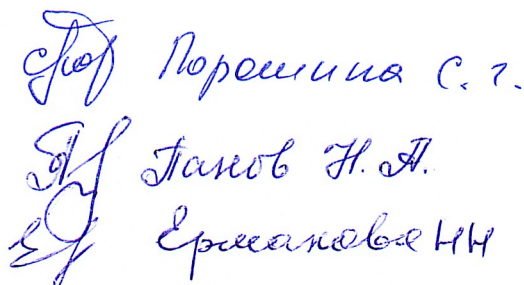 Порошина С. г.
Панов Н. П.
Ермакова НН